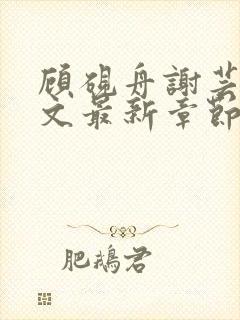 顾砚舟謝芸
文最新章節
肥鵝君